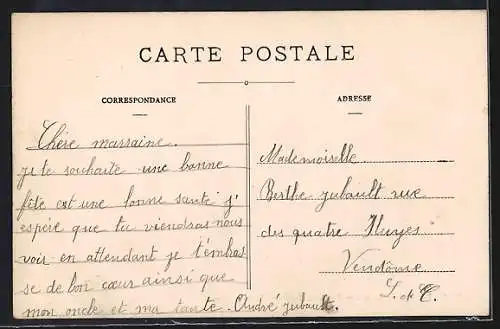 CARTE POSTALE
CORRESPONDANCE
ADRESSE
Chère marraine.
je te souhaite une bonne
fête est une bonne santé j'
espère que tu viendras nous
voir en attendant je t'embras
se de bon cœur ainsi que
mon oncle et ma tante. André Jubault.
Mademoiselle
Berthe Jubault rue
des quatre Huyes
Vendôme
L. et C.